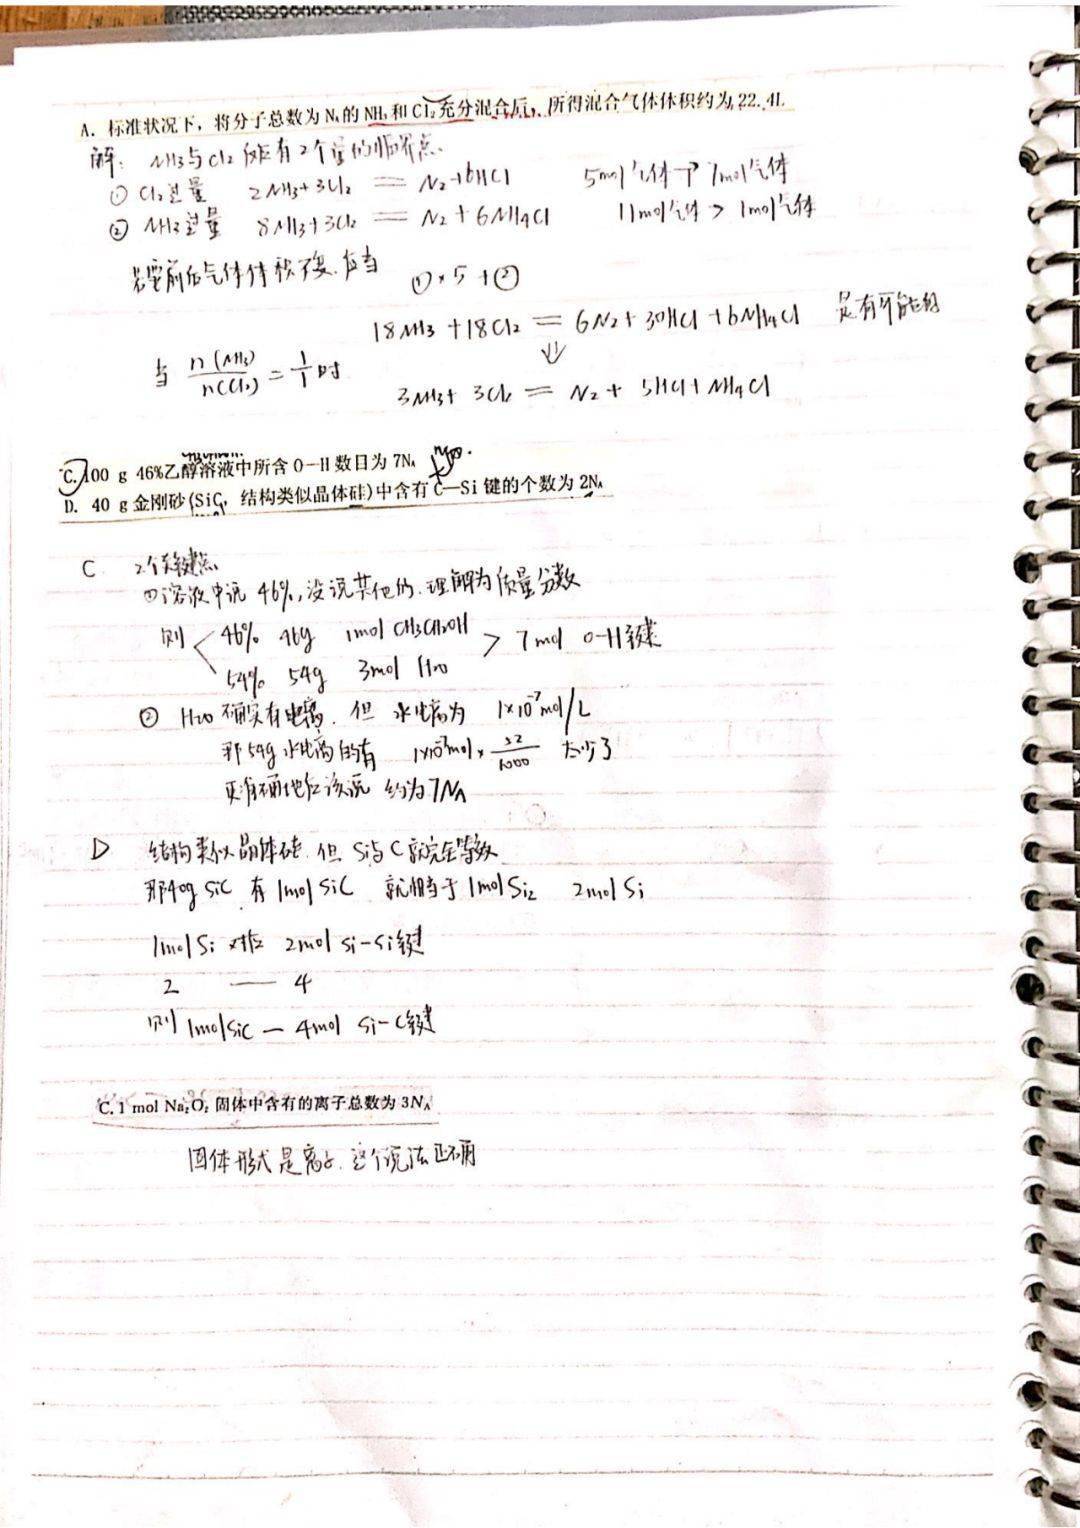 A. 标准状况下，将分子总数为 Nₐ的 NH₃和 Cl₂充分混合后，所得混合气体体积约为 22.4L
解：NH3与Cl2 反应有2个量的临界点.
① Cl2过量 2NH3+3Cl2 == N2+6HCl 5mol气体→7mol气体
② NH3过量 8NH3+3Cl2 == N2+6NH4Cl 11mol气体→1mol气体
若要前后气体体积不变.应当 ①×5+②
18NH3+18Cl2 == 6N2+30HCl+6NH4Cl 是有可能的
⇓
当 n(NH3)/n(Cl2) = 1/1 时 3NH3+3Cl2 == N2+5HCl+NH4Cl
C. 100 g 46%乙醇溶液中所含 O—H 数目为 7Nₐ H2O.
D. 40 g 金刚砂(SiC，结构类似晶体硅)中含有 C—Si 键的个数为 2Nₐ
C 2个关键点.
①溶液中说 46%,没说其他的.理解为质量分数
则 < 46% 46g 1mol CH3CH2OH > 7mol O-H键
54% 54g 3mol H2O
② H2O 确实有电离. 但 水电离为 1×10⁻⁷mol/L
那54g水电离的有 1×10⁻⁷mol× /1000 太少了
更准确地应该说 约为7Nₐ
D 结构类似晶体硅.但 Si与C就完全等效
那40g SiC 有 1mol SiC 就相当于 1mol Si2 2mol Si
1mol Si 对应 2mol Si-Si键
2 —— 4
则 1mol SiC — 4mol Si-C键
C. 1 mol Na₂O₂ 固体中含有的离子总数为 3Nₐ
固体形式是离子.这个说法正确